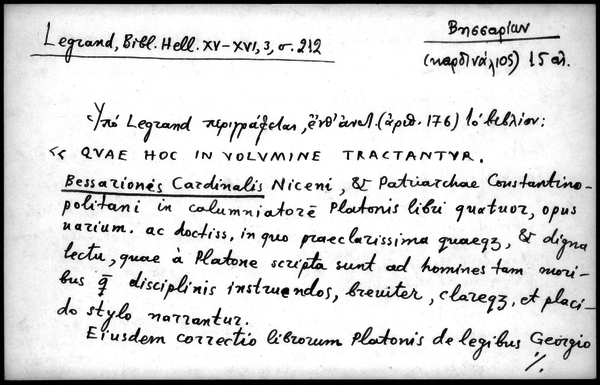 Legrand, Bibl. Hell. XV-XVI, 3, σ. 212
Βησσαρίων
(καρδινάλιος) 15 αἰ.
Ὑπὸ Legrand περιγράφεται, ἔνθ' ἀνωτ. (ἀριθ. 176) τὸ βιβλίον:
« QVAE HOC IN VOLVMINE TRACTANTVR.
Bessarionis Cardinalis Niceni, & Patriarchae Constantino-
politani in calumniatorē Platonis libri quatuor, opus
uarium. ac doctiss. in quo praeclarissima quaeqz, & digna
lectu, quae à Platone scripta sunt ad homines tam mori-
bus q̄ disciplinis instruendos, breuiter, clareqz, et placi-
do stylo narrantur.
Eiusdem correctio librorum Platonis de legibus Georgio
./.